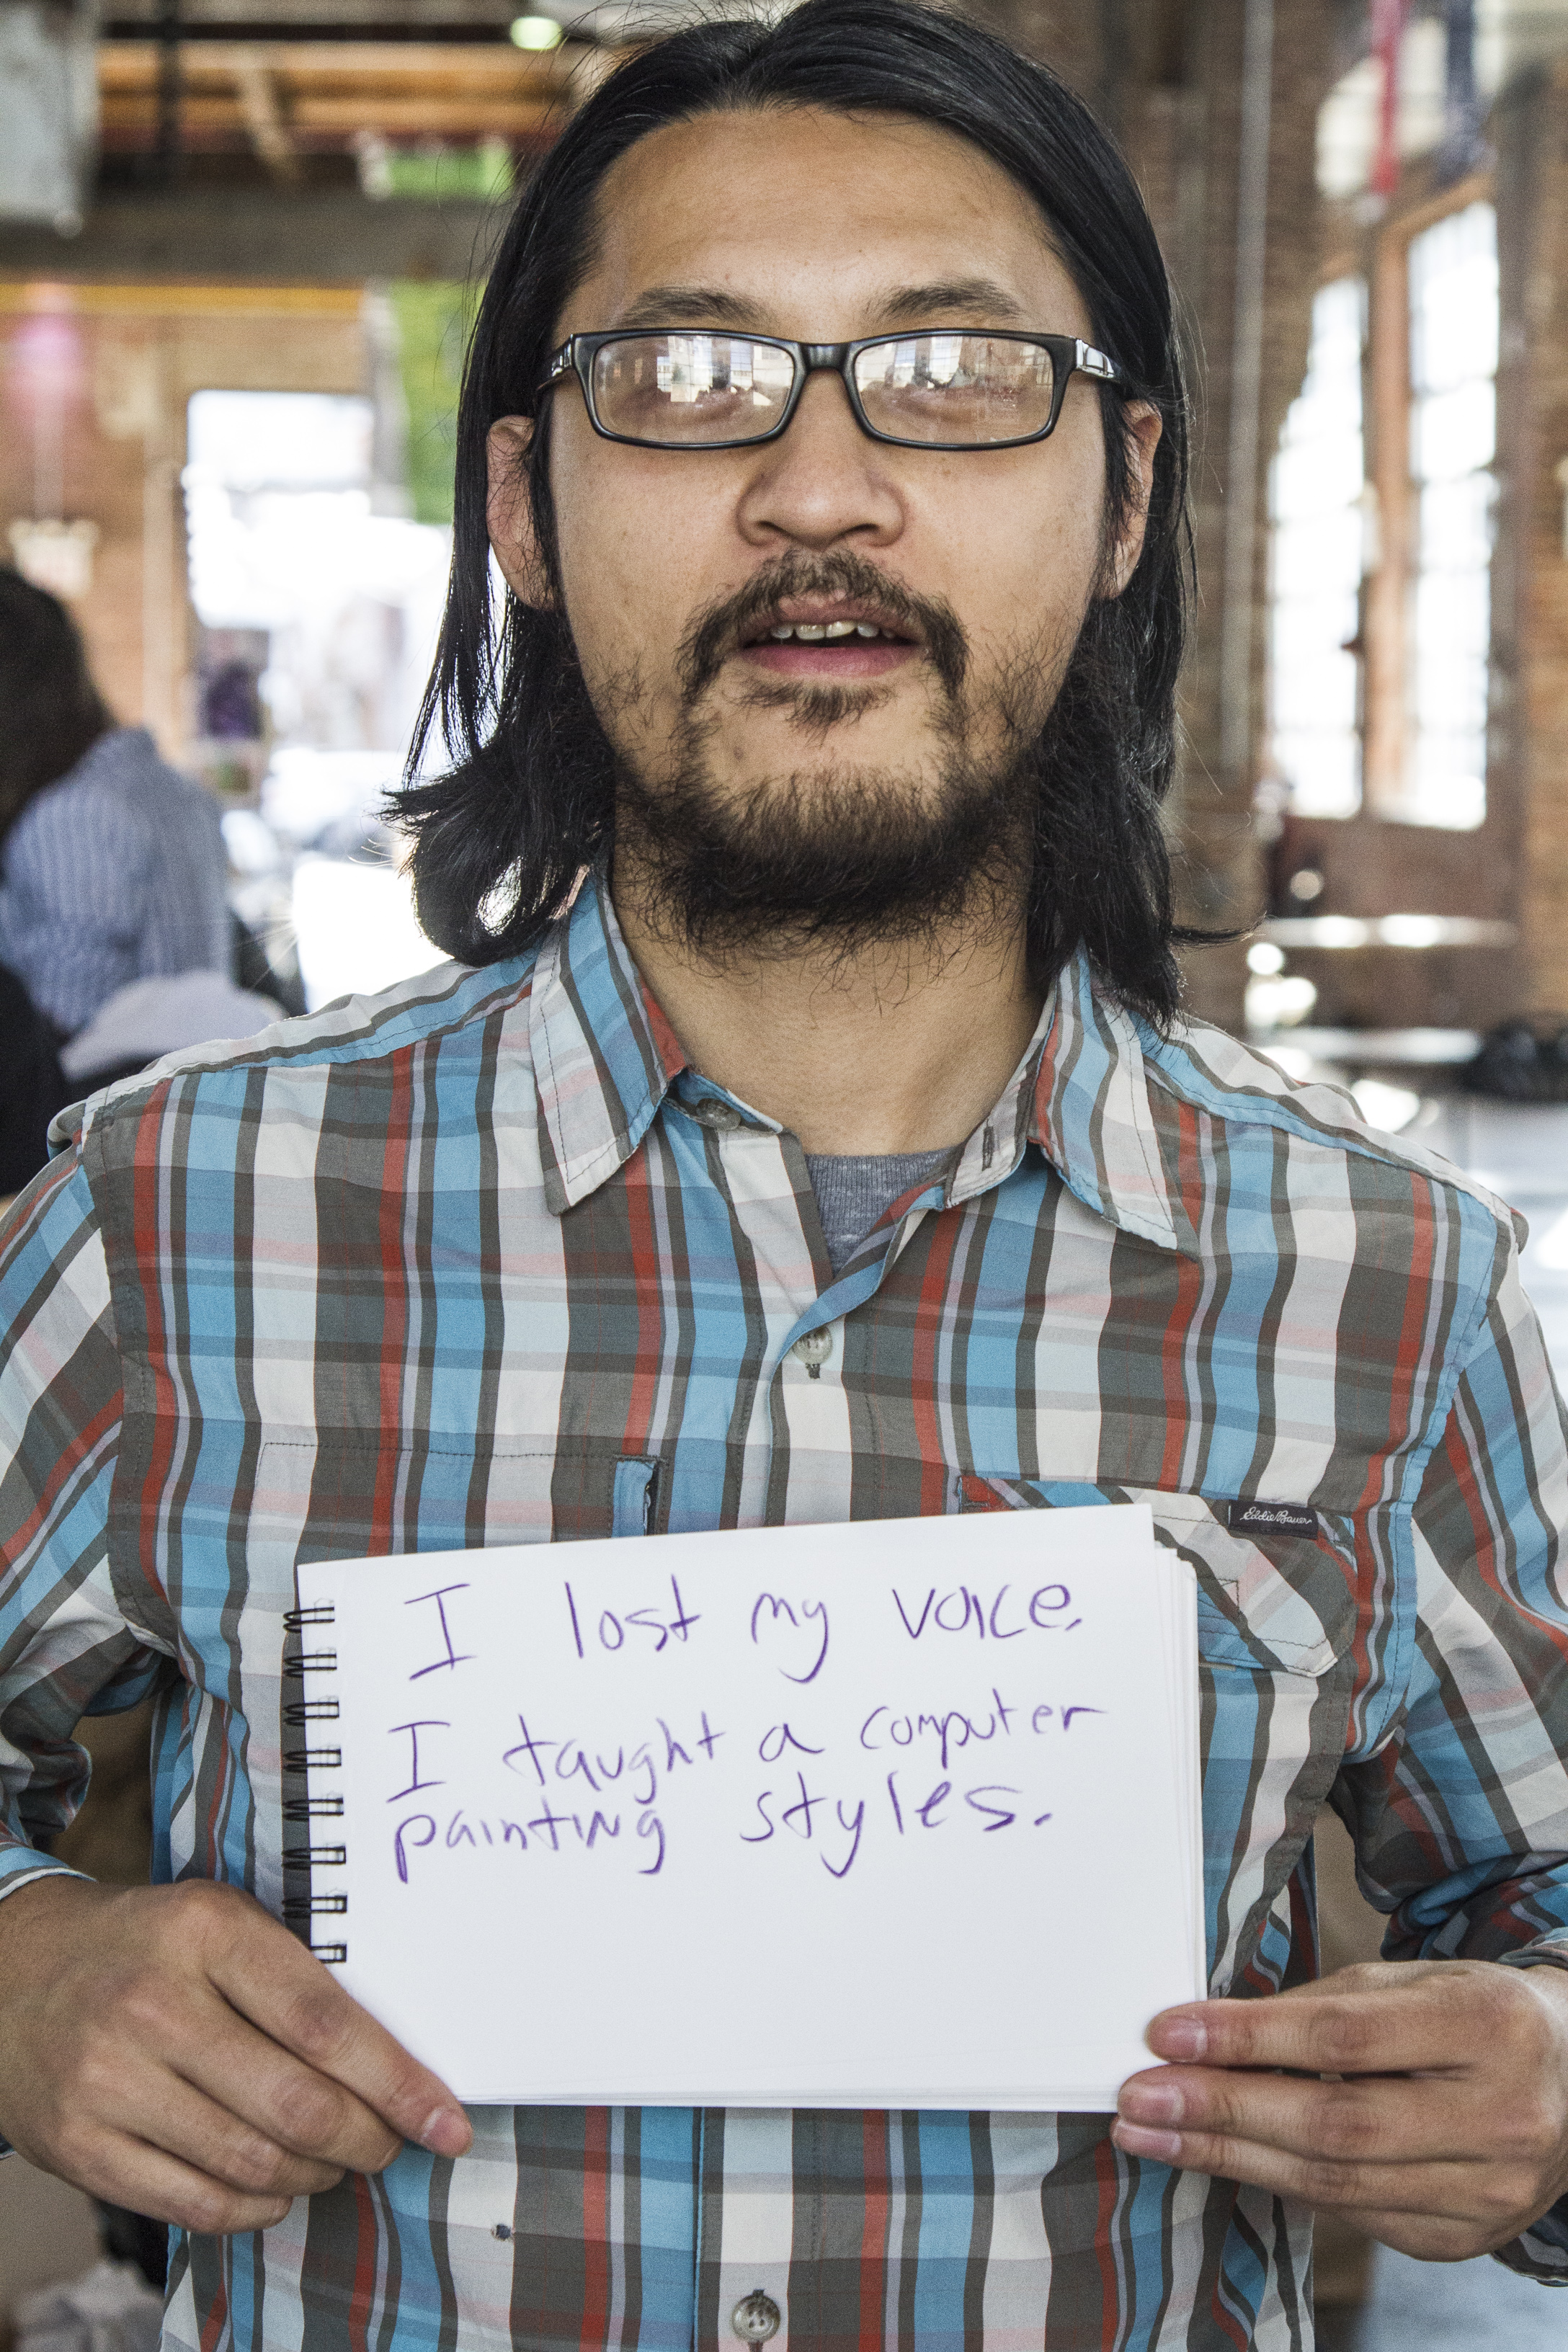 Eddie Bauer
I lost my voice.
I taught a computer
painting styles.